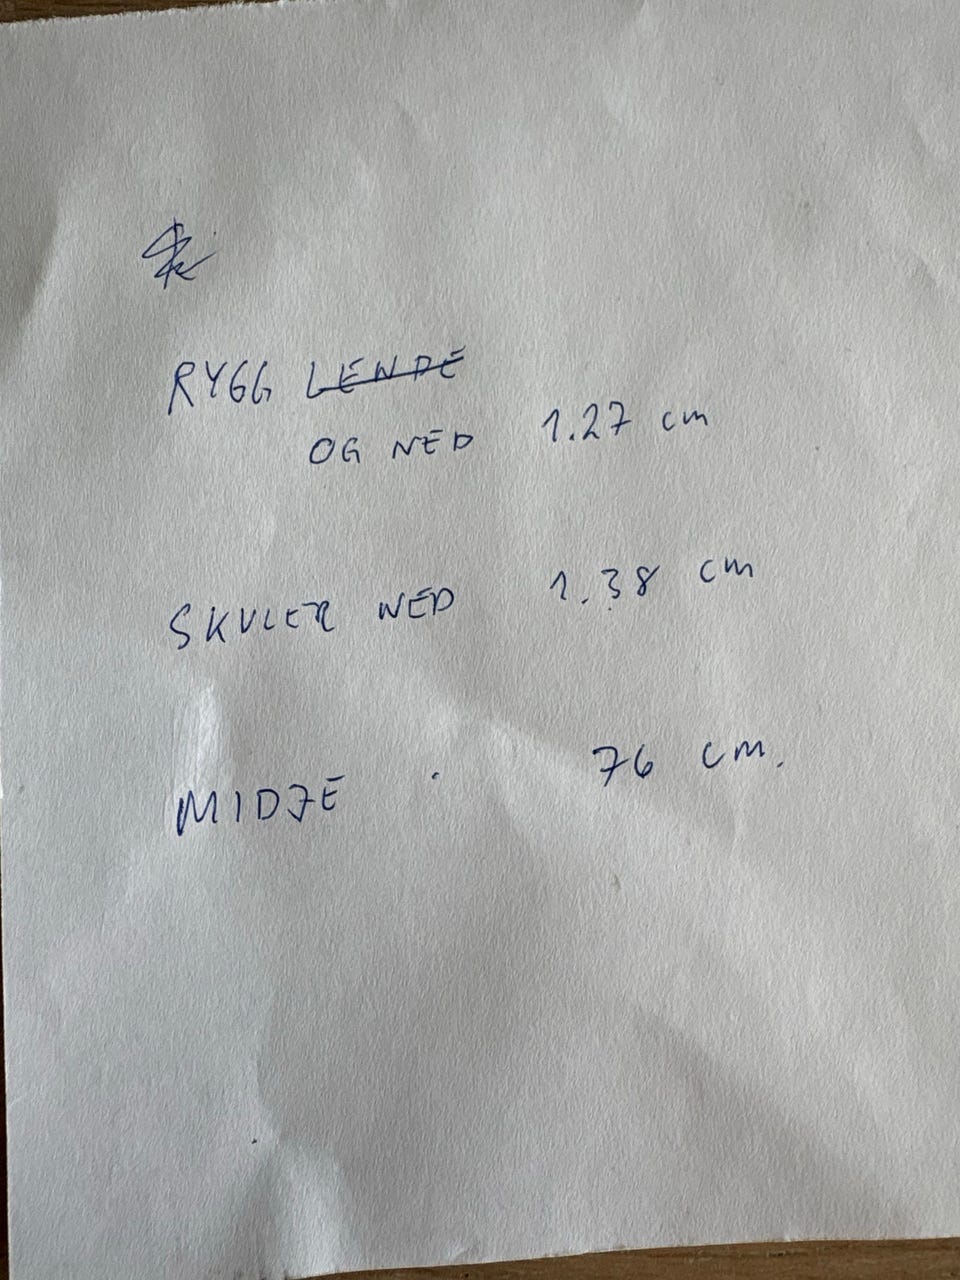 RYGG LENDE
OG NED 1.27 cm
SKULER NED 1.38 cm
MIDJE 76 cm.